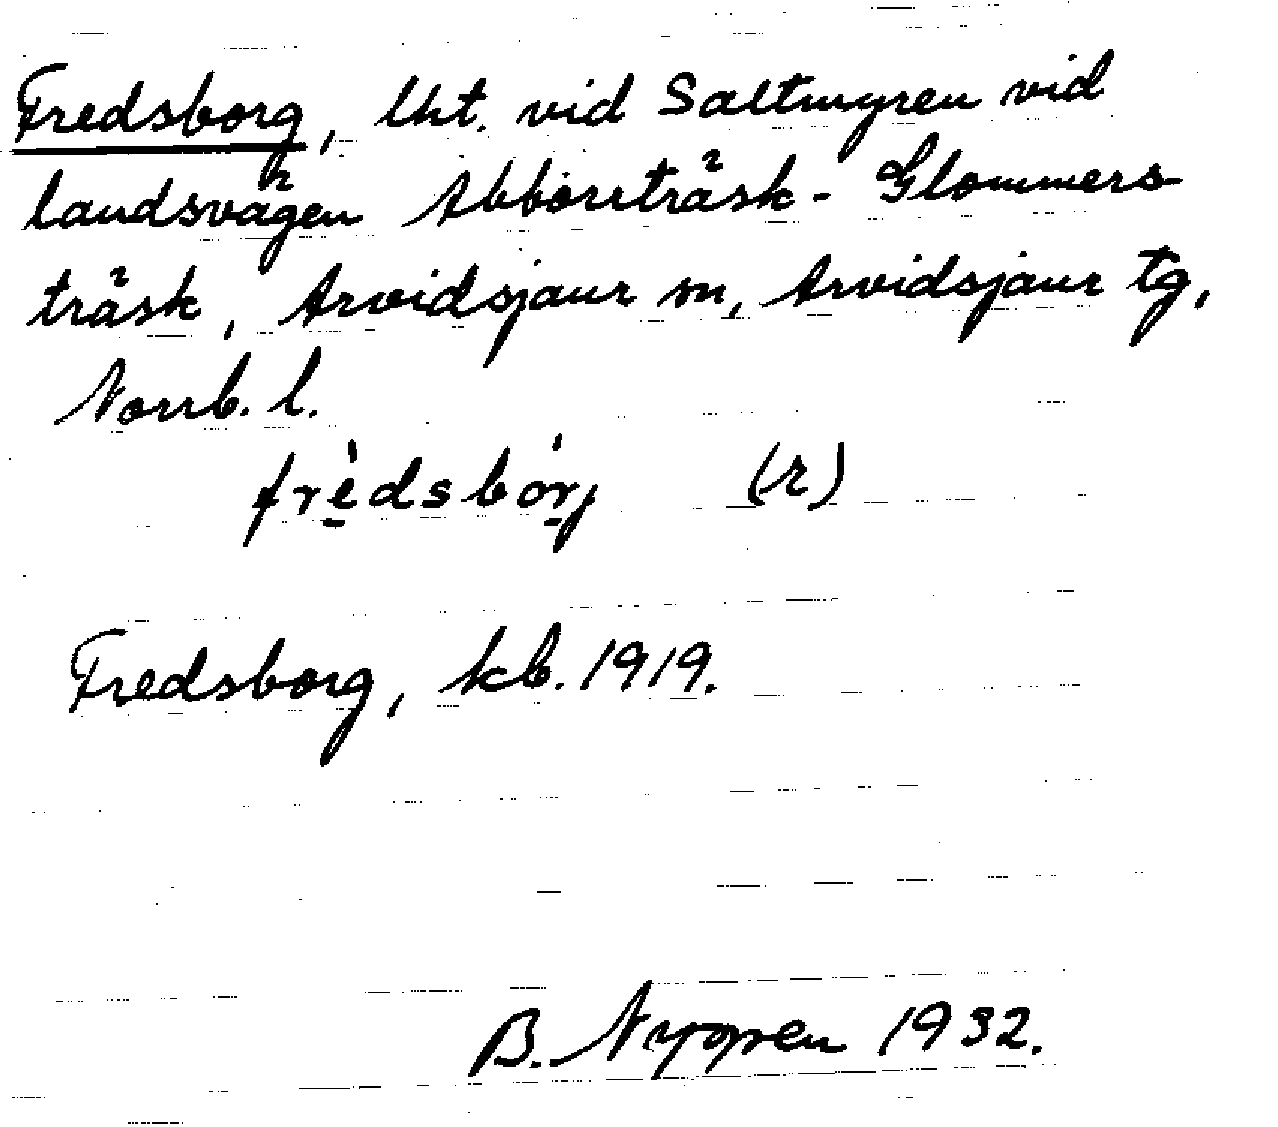 Fredsborg, lht. vid Saltmyren vid
landsvägen Abborrträsk - Glommers-
träsk, Arvidsjaur sn, Arvidsjaur tg,
Norrb. l.
frèdsbórj (r)
Fredsborg, kb. 1919.
B. Nygren 1932.